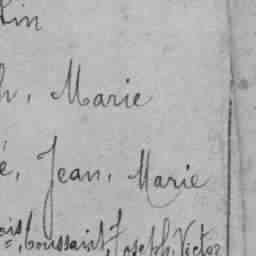 lin
h, Marie
é, Jean, Marie
ois, Toussaint, Joseph, Victor